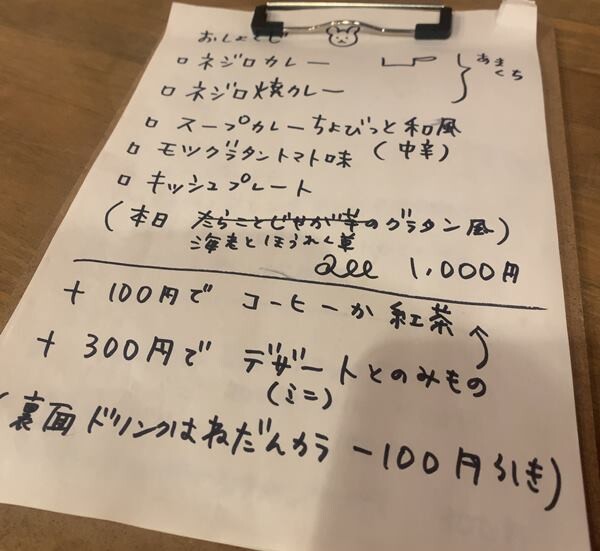 おしょくじ
ロ ネジロカレー
ロ ネジロ焼カレー
あまくち
ロ スープカレーちょびっと和風
(中辛)
ロ モツグラタントマト味
ロ キッシュプレート
(本日 たらことじゃが芋のグラタン風)
海老とほうれん草
all 1,000円
+ 100円で コーヒーか紅茶
+ 300円で デザートとのみもの
(ミニ)
(裏面ドリンクはねだんカラ -100円引き)